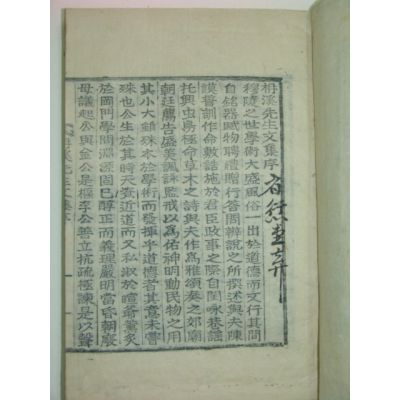 栟溪先生文集序
穆陵之世學術大盛風俗一出於道德而文行其間
自銘器賦物聘禮贈行答問辯說之所撰述與夫陳
謨誓訓作命敷誥施於君臣政事之際自閭咏巷謠
托興虫鳥極命草木之詩與夫作爲雅頌奏之郊廟
朝廷薦告盛美諷詠監戒以爲佑神明動民物之用
其小大錯殊本於學術而發揮乎道德者其意未嘗
殊也公生於其時天資近道而又私淑於暄翁薰炙
於岡門學問淵源固已醇正而義理嚴明當昏朝廢
母議起公與金公是樞李公善立抗疏極諫是以聲